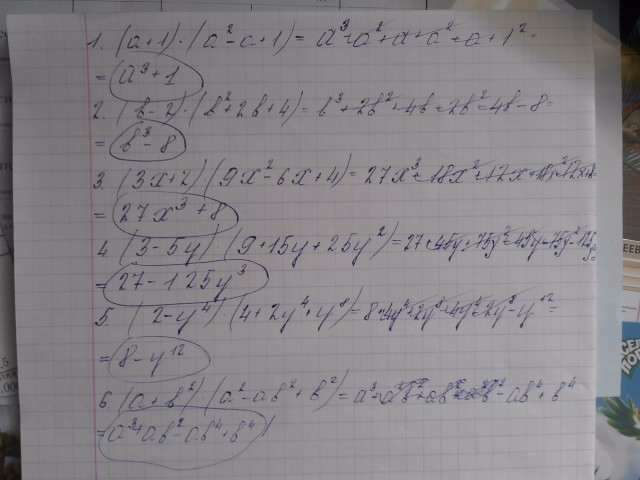 1. (a+1)·(a²-a+1) = a³-a²+a+a²-a+1² =
= a³+1
2. (b-2)·(b²+2b+4) = b³+2b²+4b-2b²-4b-8=
= b³-8
3. (3x+2)(9x²-6x+4) = 27x³-18x²+12x+18x²-12x+8
= 27x³+8
4 (3-5y)(9+15y+25y²) = 27+45y+75y²-45y-75y²-125y³
= 27-125y³
5. (2-y⁴)(4+2y⁴+y⁸) = 8+4y⁴+2y⁸-4y⁴-2y⁸-y¹²=
= 8-y¹²
6. (a+b²)·(a²-ab²+b²) = a³-a²b²+ab²+a²b²-ab⁴+b⁴
= a³+ab²-ab⁴+b⁴